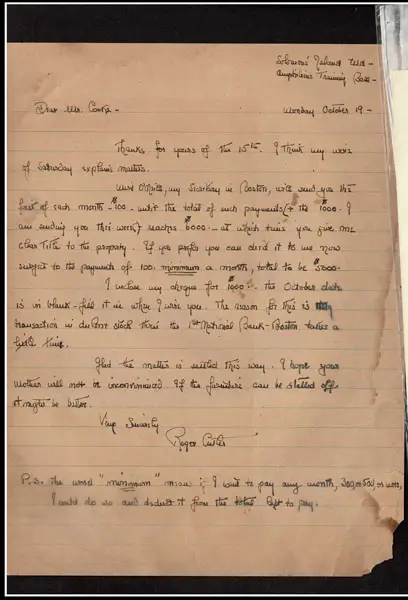 Solomons Island Md -
Amphibious Training Base -
Dear Mr. Cooke -
Monday October 19 -
Thanks for yours of the 15th. I think my wire
of Saturday explains matters.
Miss my Secretary in Boston, will send you the
first of each month $100 - until the total of such payments (+ the $1000. I
am sending you this week) reaches $6000 - at which time you give me
clear title to the property. If you prefer you can deed it to me now
subject to the payments of 100. minimum a month, total to be $5000.
I inclose my cheque for $1000 - the October date
is in blank - fill it in when I wire you. The reason for this is
transaction in stock thru the 1st National Bank - Boston takes a
little time.
Glad the matter is settled this way. I hope your
mother will not be inconvenienced. If the furniture can be stalled off
it might be better.
Very Sincerely
Roger Cutler
P.S. the word "minimum" means if I want to pay any month, 300, or 500, or more,
I could do so and deduct it from the total left to pay.